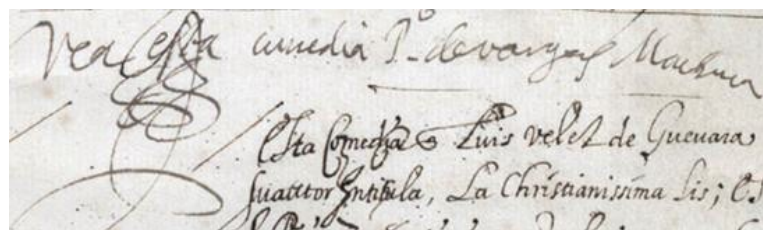 Vea esta comedia Jº de vargas Machuca
Esta Comedia Luis Velez de Guevara
su autor Intitula, La Christianissima Lis; Es